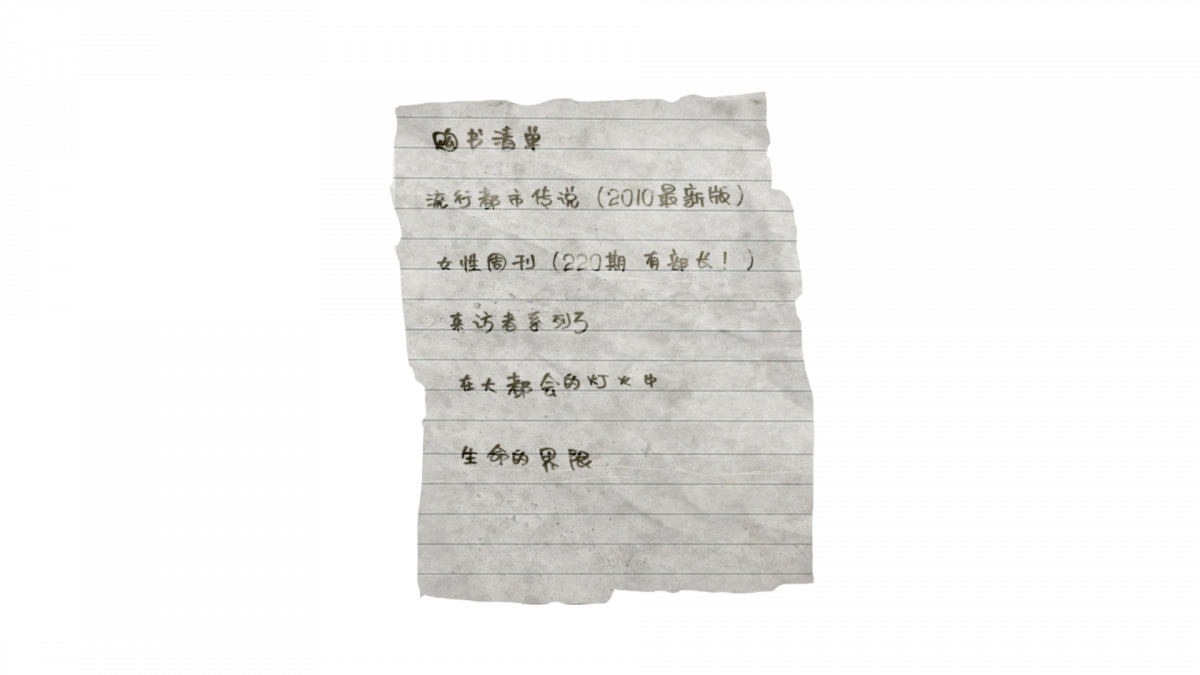 购书清单
流行都市传说（2010最新版）
女性周刊（220期 有部长！）
来访者系列3
在大都会的灯火中
生命的界限